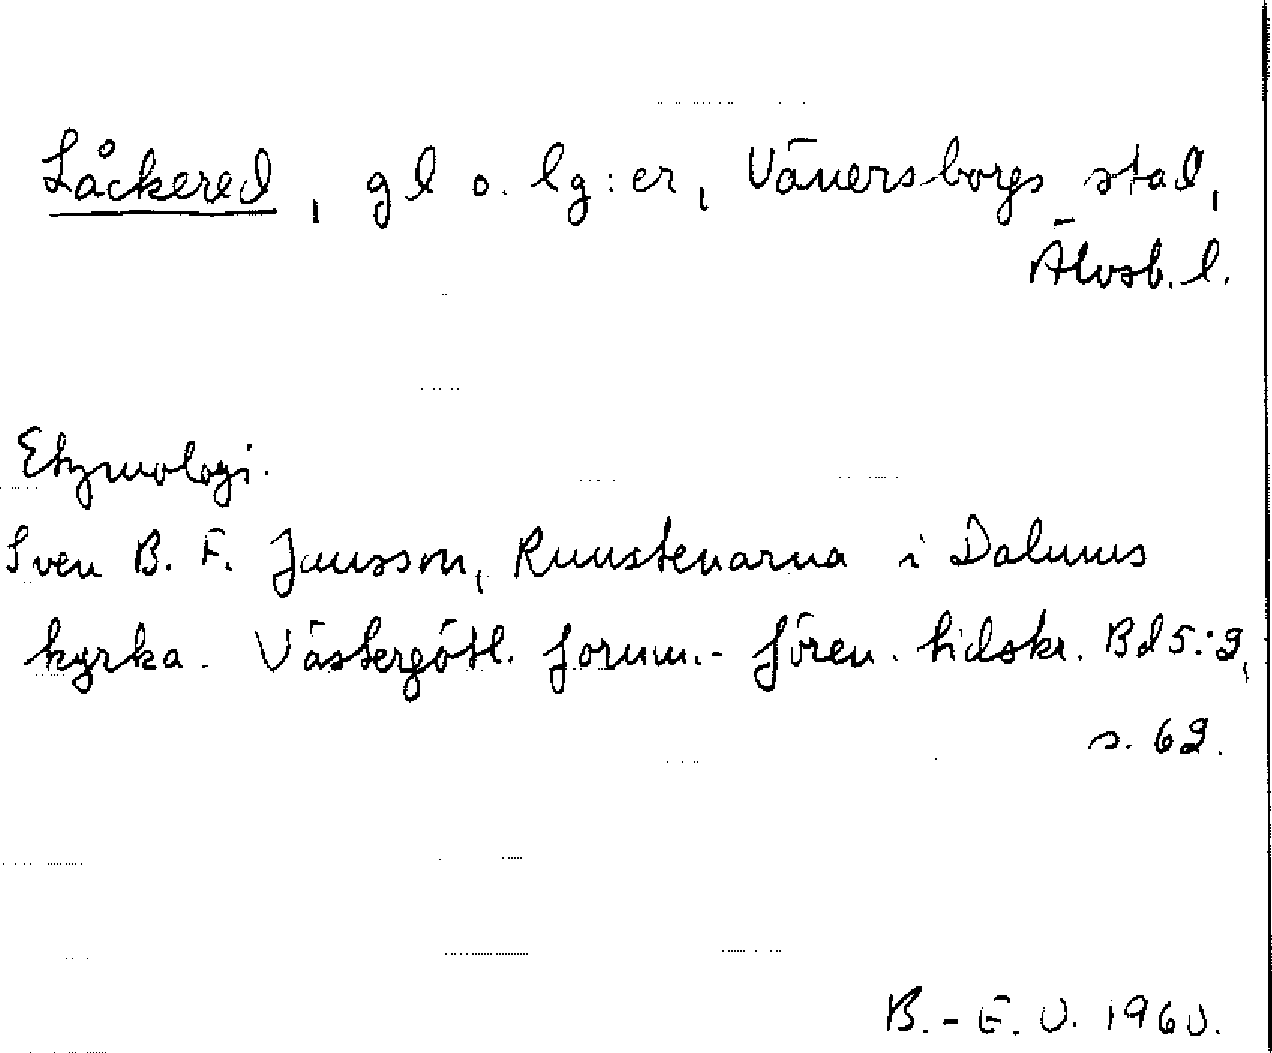 Låckered, gl o. lg:er, Vänersborgs stad,
Älvsb. l.
Etymologi.
Sven B. F. Jansson, Runstenarna i Dalums
kyrka. Västergötl. fornm.- fören. tidskr. Bd 5:9,
s. 62.
B.-E. O. 1960.